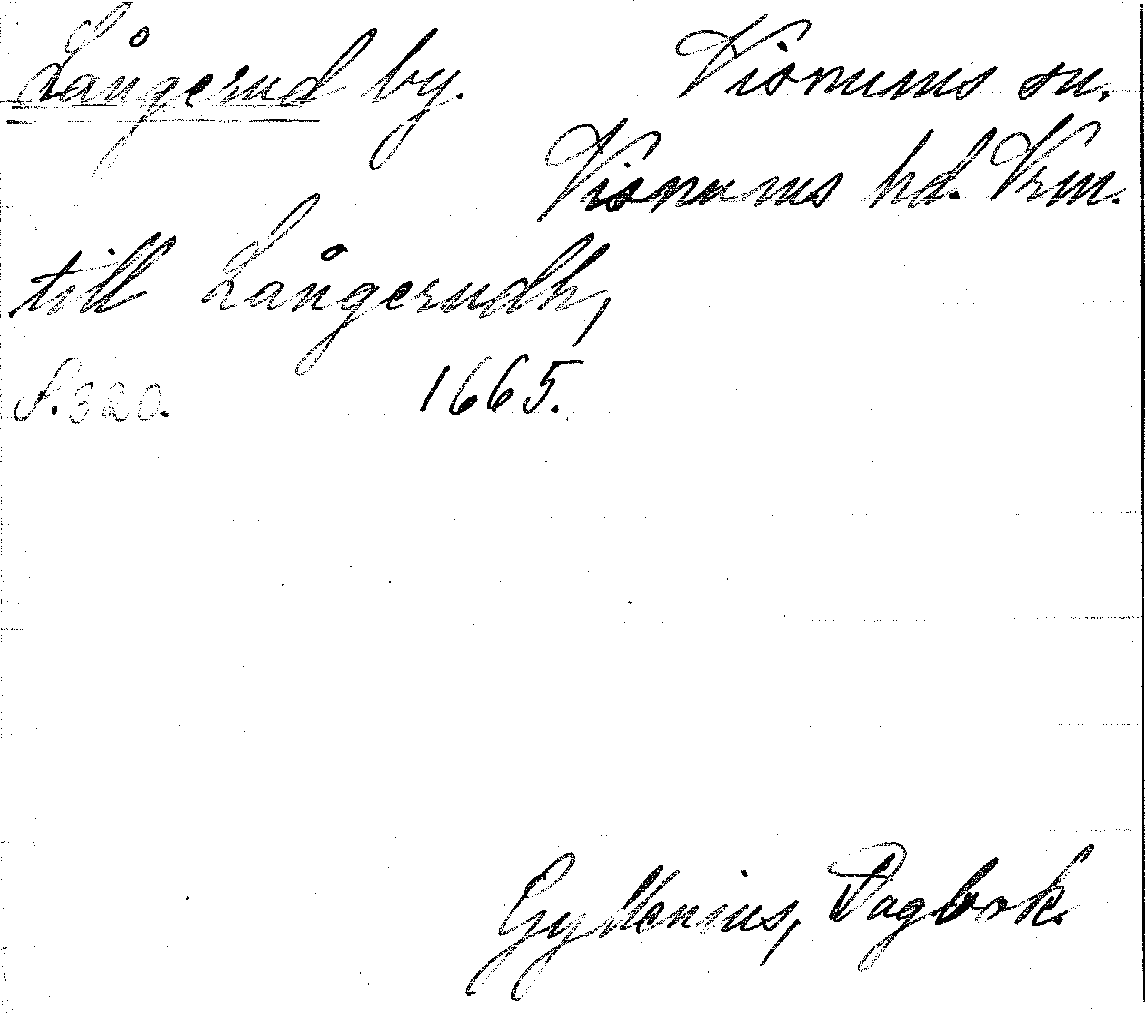 Långerud by. Visnums sn.
Visnums hd. Vrm.
till Långerudh,
S. 320. 1665.
Gyllenius, Dagbok.